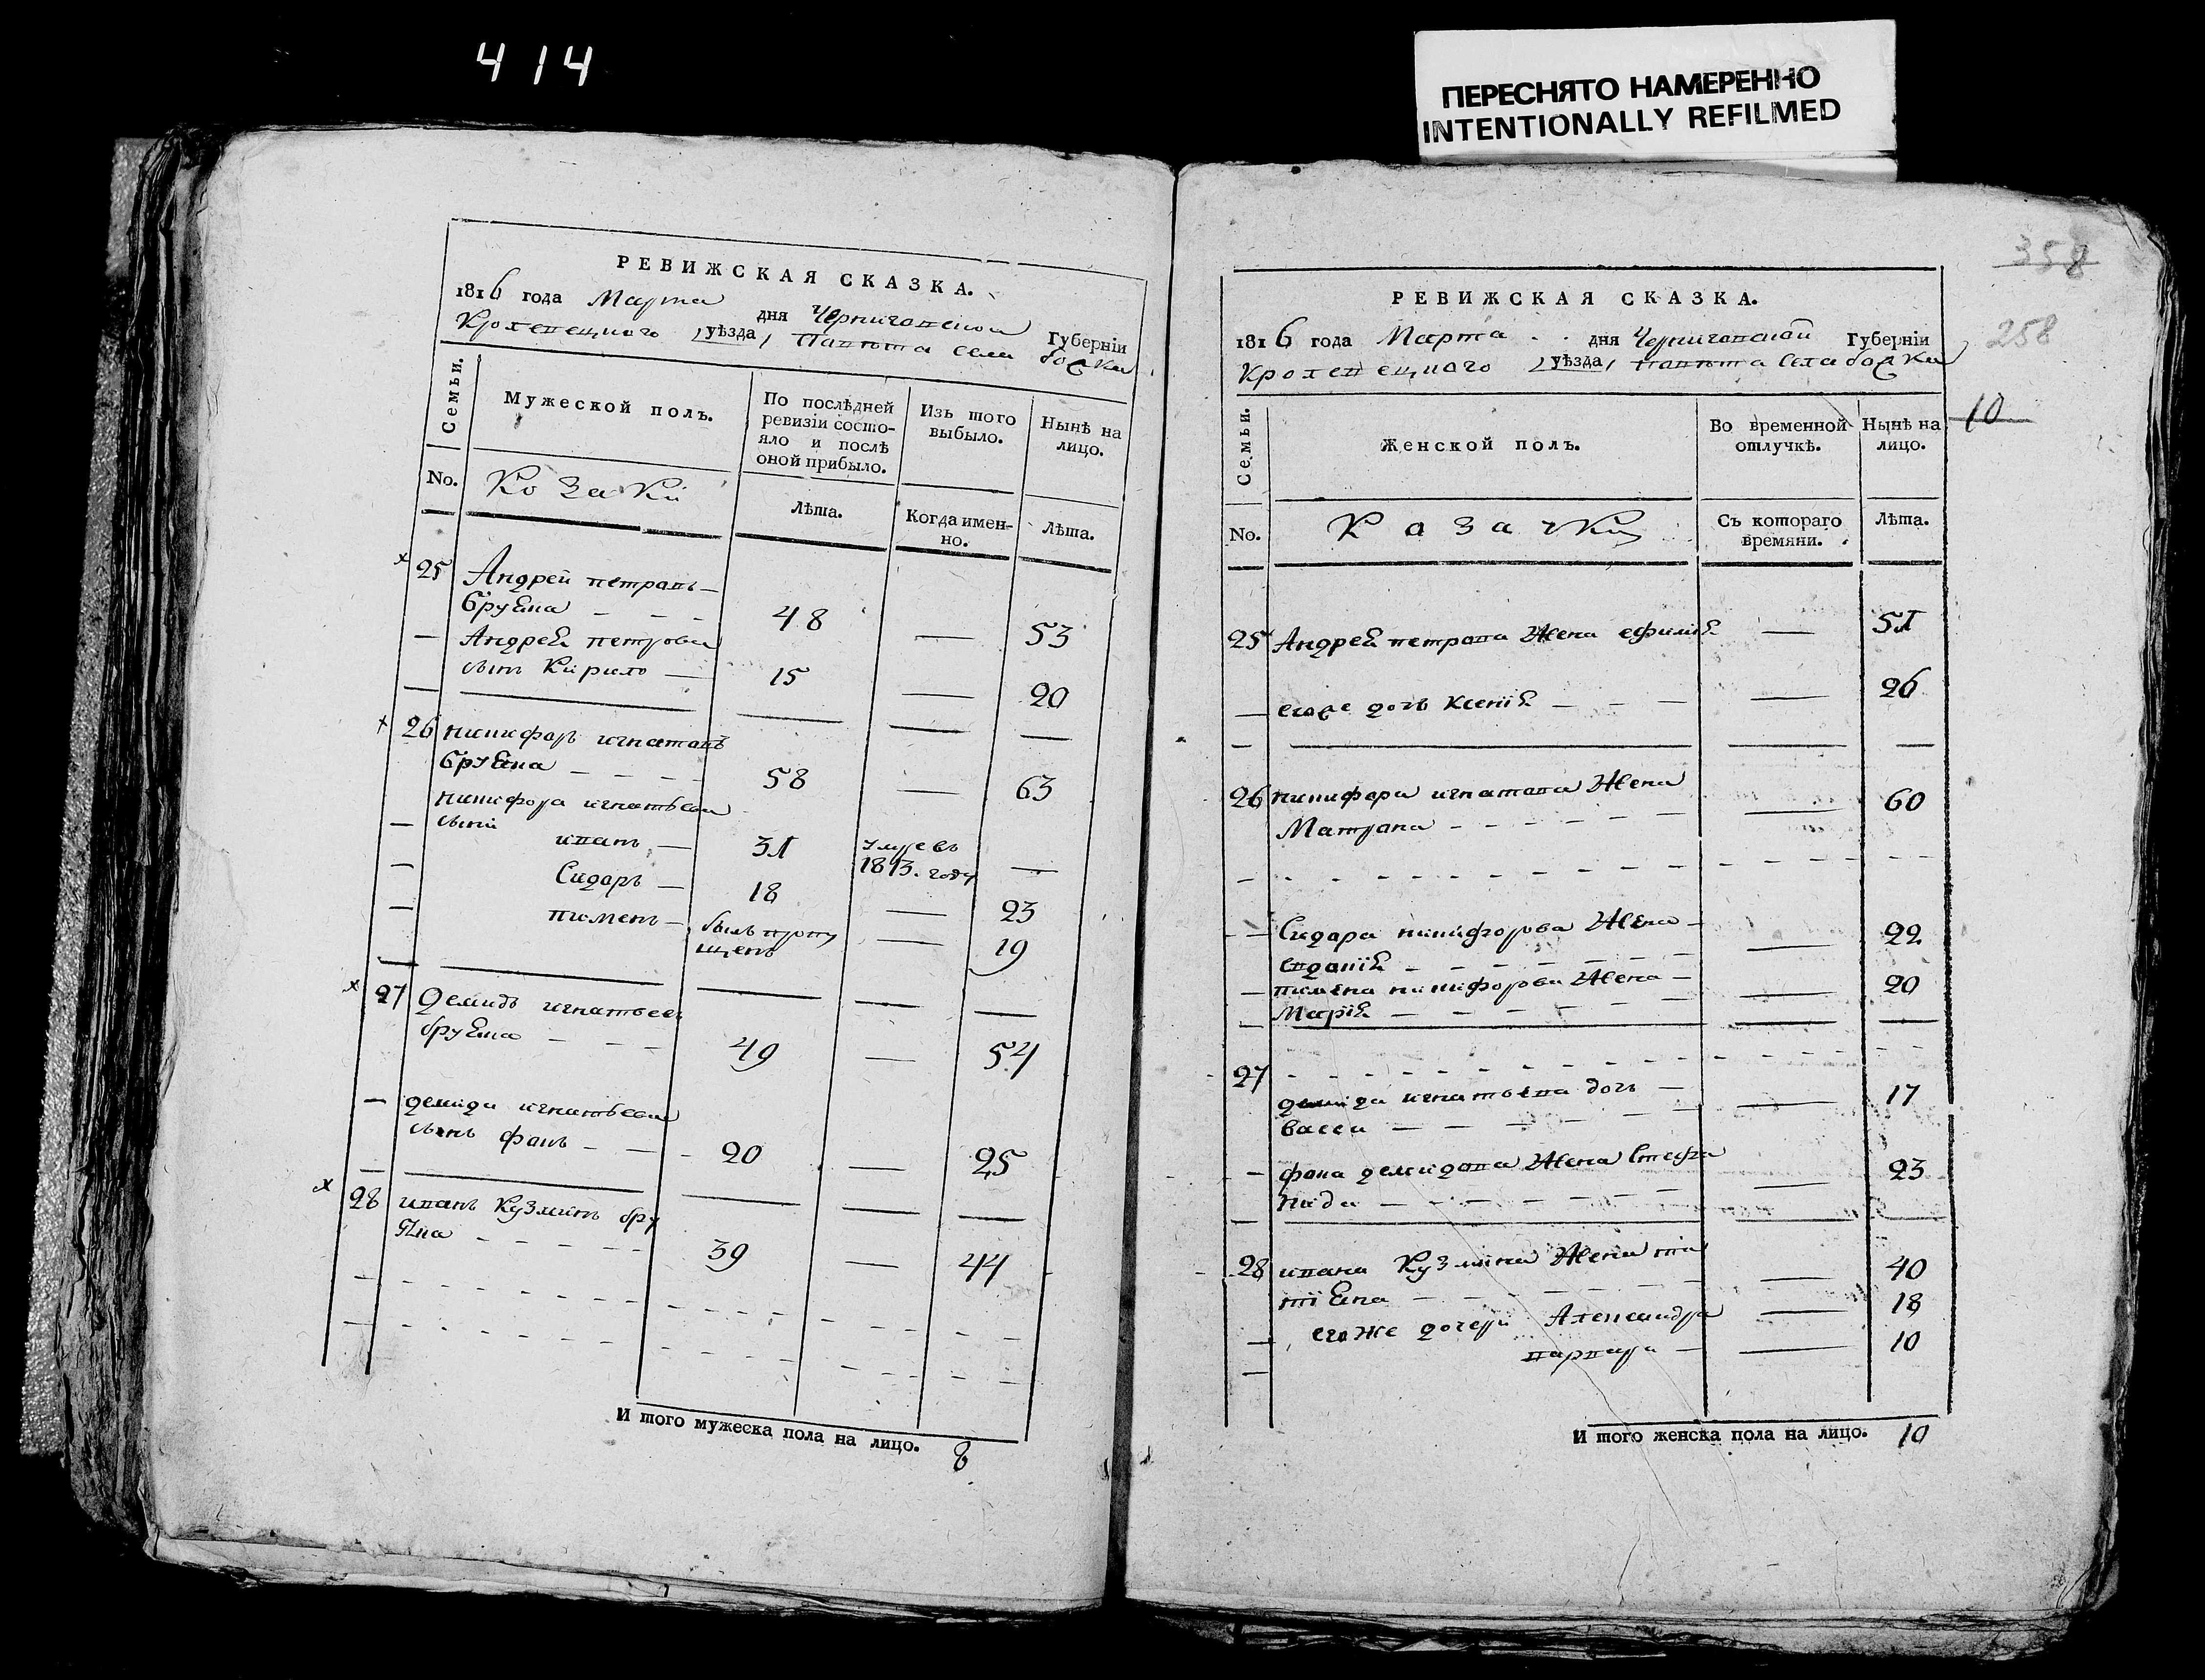 414
ПЕРЕСНЯТО НАМЕРЕННО
INTENTIONALLY REFILMED
РЕВИЖСКАЯ СКАЗКА.
1816 года Марта дня Черниговской Губерніи
Кролевецкаго уѣзда, села
Семьи.
Мужеской полъ.
По послѣдней ревизіи состо-
яло и послѣ
оной прибыло.
Изъ того
выбыло.
Нынѣ на
лицо.
No.
Козаки
Лѣта.
Когда имен-
но.
Лѣта.
25 Андрей петровъ
Бруяка 48 — 53
Андрея петрова
сынъ Кирило 15 — 20
26 никифоръ игнатовъ
Бруяка 58 — 63
никифора игнатьева
сыни
иванъ 31 умре въ
1813. году —
Сидоръ 18 — 23
пименъ былъ пропу
щенъ — 19
27 Демидъ игнатьевъ
бруяка 49 — 54
демида игнатьева
сынъ фока 20 — 25
28 иванъ Кузминъ бру
яка 39 — 44
И того мужеска пола на лицо. 8
358
258
10
РЕВИЖСКАЯ СКАЗКА.
1816 года Марта дня Черниговской Губерніи
Кролевецкаго уѣзда, села
Семьи.
Женской полъ.
Во временной
отлучкѣ.
Нынѣ на
лицо.
No.
Казачки
Съ котораго
времяни.
Лѣта.
25 Андрея петрова Жена ефимія — 51
егоже дочь Ксенія — 26
26 никифора игнатова Жена
Матрона — 60
Сидора никифорова Жена
евдокія — 22
пимена никифорова Жена
Марія — 20
27
демида игнатьева дочь
васса — 17
фоки демидова Жена Стефа
нида — 23
28 ивана Кузмина Жена та
тіяна — 40
егоже дочери Александра — 18
варвара — 10
И того женска пола на лицо. 10